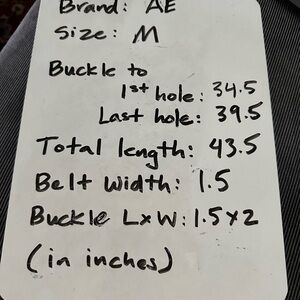 Brand: AE
Size: M
Buckle to
1st hole: 34.5
Last hole: 39.5
Total length: 43.5
Belt Width: 1.5
Buckle LxW: 1.5x2
(in inches)